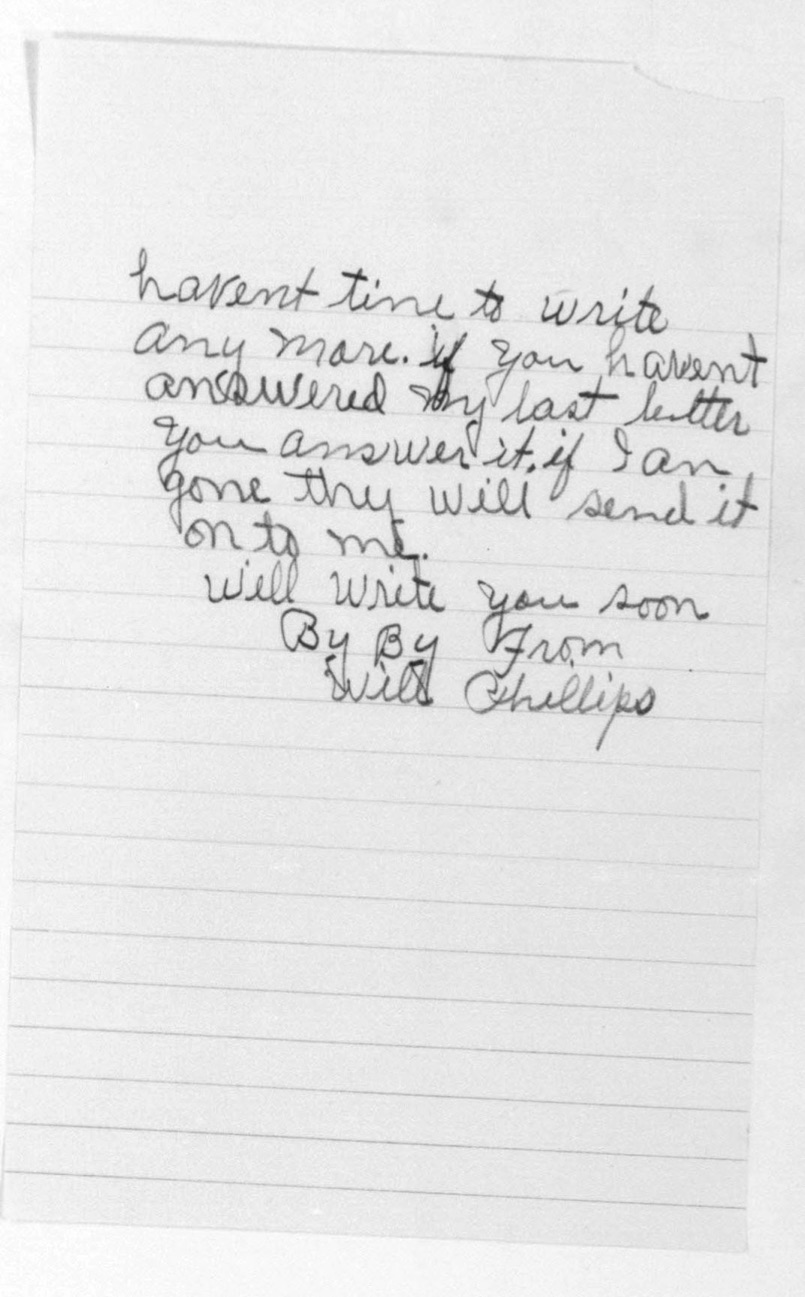 havent time to write
any more. if you havent
answered my last letter
you answer it. if I am
gone they will send it
on to me.
will write you soon
By By From
Will Phillips